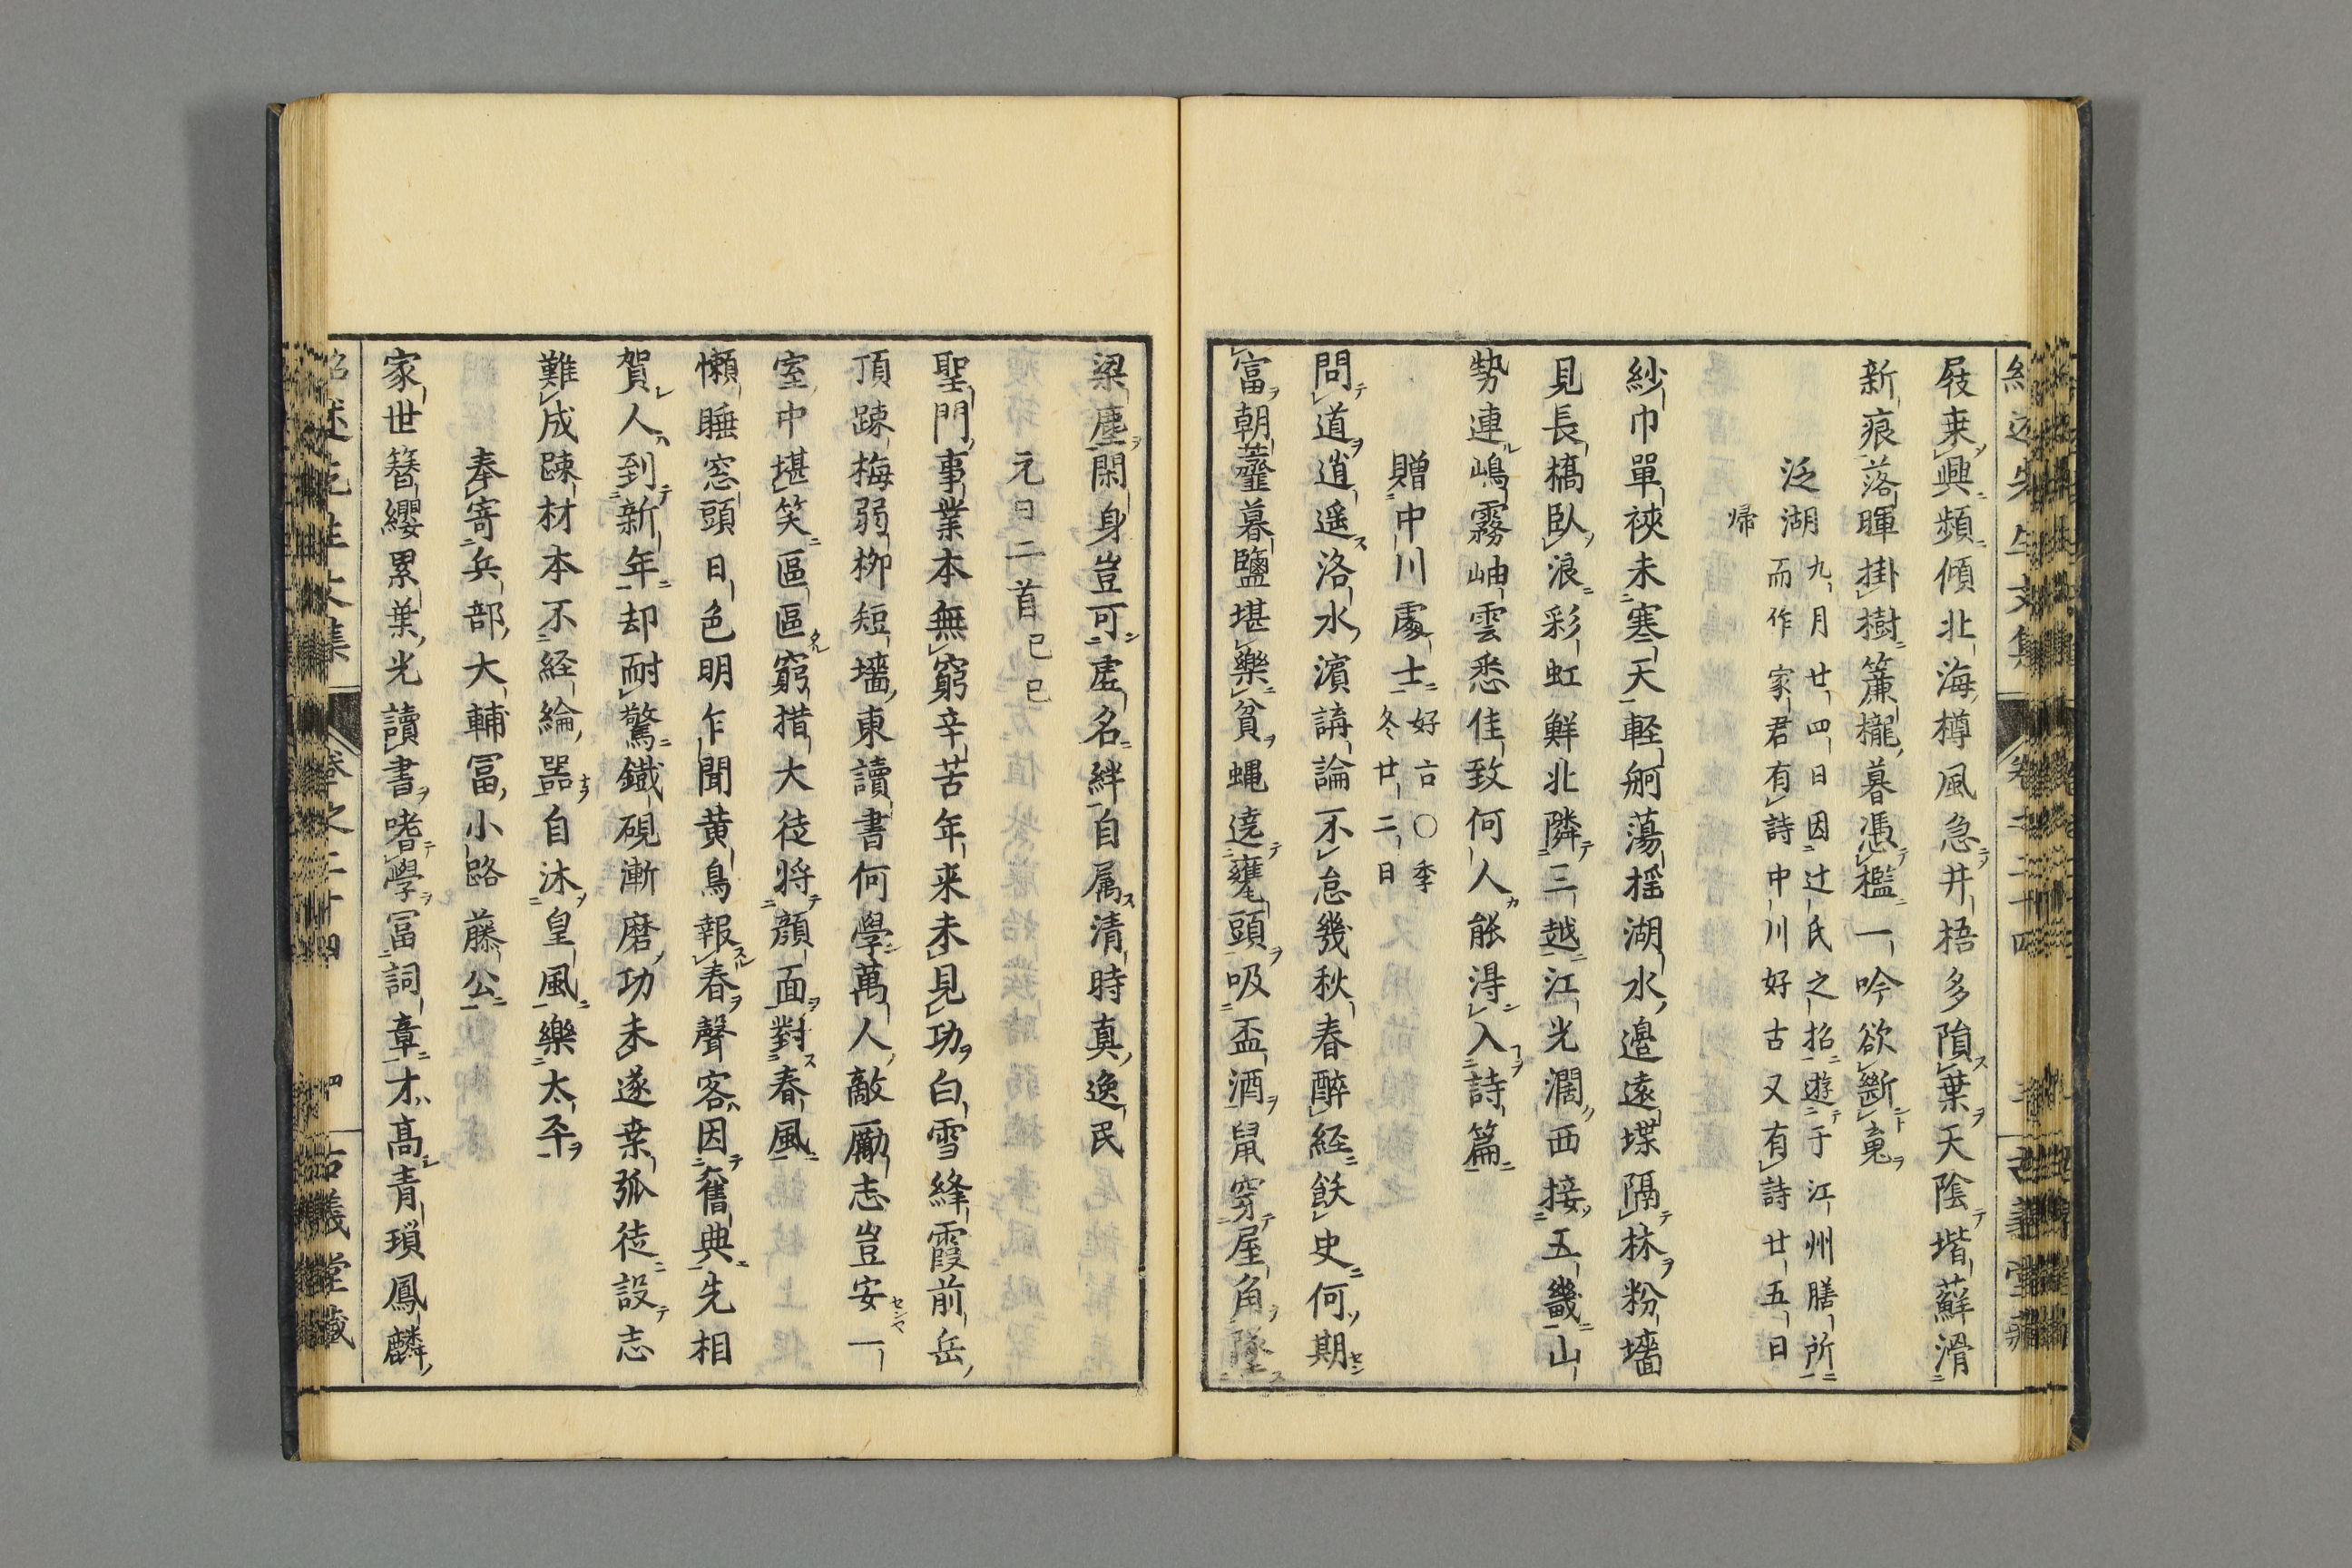 屐乗興頻傾北海樽風急井梧多隕葉天陰堦蘚滑
新痕落暉掛樹簾櫳暮憑檻一吟欲斷䰟
泛湖
九月廿四日因辻氏之招遊于江州膳所
而作家君有詩中川好古又有詩廿五日
帰
紗巾單裌未寒天軽舸蕩揺湖水邉遠堞隔林粉墻
見長橋臥浪彩虹鮮北隣三越江光濶西接五畿山
勢連嶋霧岫雲悉佳致何人能得入詩篇
贈中川處士
好古〇季
冬廿二日
問道逍遥洛水濱講論不怠幾秋春醉経飫史何期
富朝虀暮鹽堪樂貧蝿遶甕頭吸盃酒鼠穿屋角墜
梁塵閑身豈可虚名絆自属清時真逸民
元日二首己巳
聖門事業本無窮辛苦年来未見功白雪絳霞前岳
頂踈梅弱栁短墻東讀書何學萬人敵勵志豈安一
室中堪笑區區窮措大徒将顔面對春風
懶睡窓頭日色明乍聞黄鳥報春聲客因舊典先相
賀人到新年却耐驚鐵硯漸磨功未遂桒弧徒設志
難成踈材本不経綸噐自沐皇風樂太平
奉寄兵部大輔冨小路藤公
家世簪纓累葉光讀書嗜學冨詞章才高青瑣鳳麟
紹述先生文集
卷之二十四
四
古義堂藏